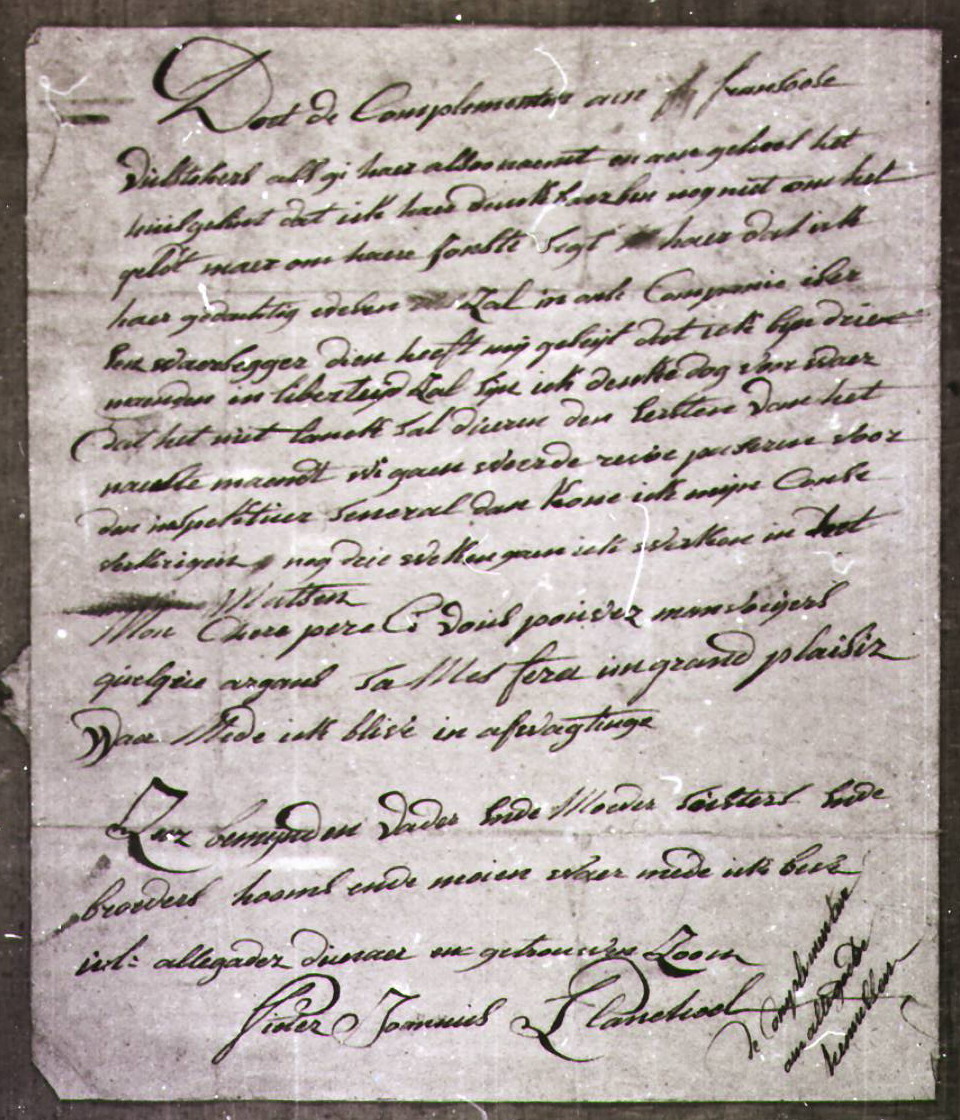 Doet de Complementen aen fransoose
vuilstekers als gi haer alsoo naemt en aen geheel het
huisgesin dat ick haer danck haer ben nog niet om het
geldt maer om haere forste segt haer dat ick
haer gedachtig weben Zal in onse Companie is er
Een waersegger dien heeft mij geseijt dat ick bijn drie
maenden in liberteijd Zal Sijn ick dencke dog voorwaer
dat het niet lanck sal dueren den Eersten van het
naeste maendt wi gaen woerde revue paseren voor
den inspekteur General dan kone ick mijn Conse
verkrigen nog drie weken gaen ick werken in het
Matsen
Mon Chere pere Ci vous pouvez manvoijers
quelque argans sa Mes fera un grand plaisir
Waar Mede ick blive in afwagtinge
Zeer beminden Vader Ende Moeder süsters Ende
broeders hooms ende moien waer mede ick blive
ul: allegader dienaer en getrouwen Zoon
Pieter Joannus Planckeel
de Complementen
aen allegader
kennissen